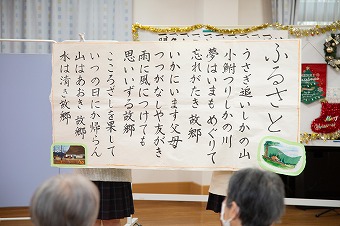 ふるさと
うさぎ追いしかの山
小鮒つりしかの川
夢はいまも めぐりて
忘れがたき 故郷
いかにいます 父母
つつがなしや 友がき
雨に風に つけても
思いいずる 故郷
こころざしを 果して
いつの日にか 帰らん
山はあおき 故郷
水は清き 故郷